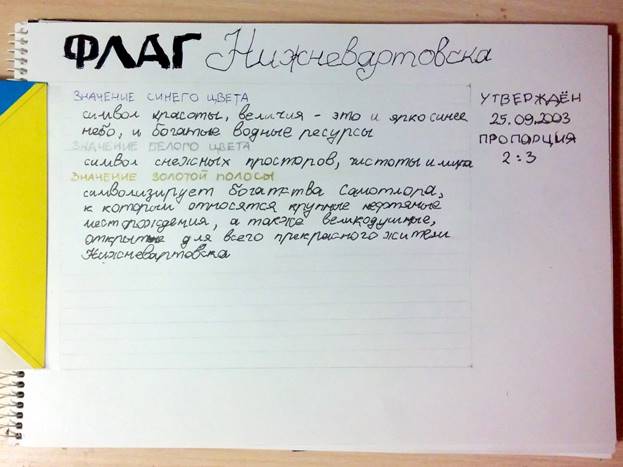 ФЛАГ Нижневартовска
ЗНАЧЕНИЕ СИНЕГО ЦВЕТА
символ красоты, величия - это и ярко синее
небо, и богатые водные ресурсы
ЗНАЧЕНИЕ БЕЛОГО ЦВЕТА
символ снежных просторов, чистоты и мира
ЗНАЧЕНИЕ ЗОЛОТОЙ ПОЛОСЫ
символизирует богатства Самотлора,
к которым относятся крупные нефтяные
месторождения, а также великодушные,
открытые для всего прекрасного жители
Нижневартовска
УТВЕРЖДЁН
25.09.2003
ПРОПОРЦИЯ
2:3